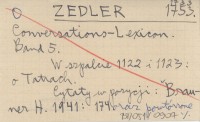 O ZEDLER 1733.
Conversations-Lexicon.
Band 5.
W szpalcie 1122 i 1123:
o Tatrach.
Cytaty w pozycji: Brau-
ner H. 1941: 174